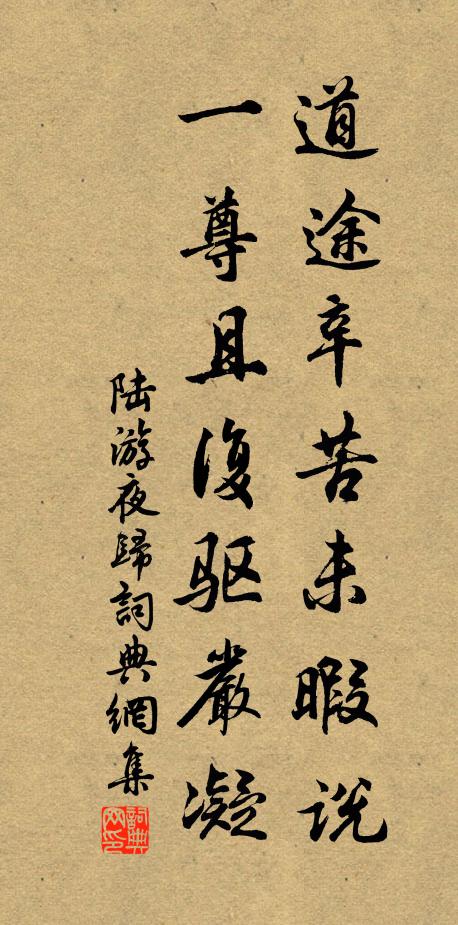 道途辛苦未暇说
一尊且復驱嚴凝
陆游夜歸詞典網集
詞典网印